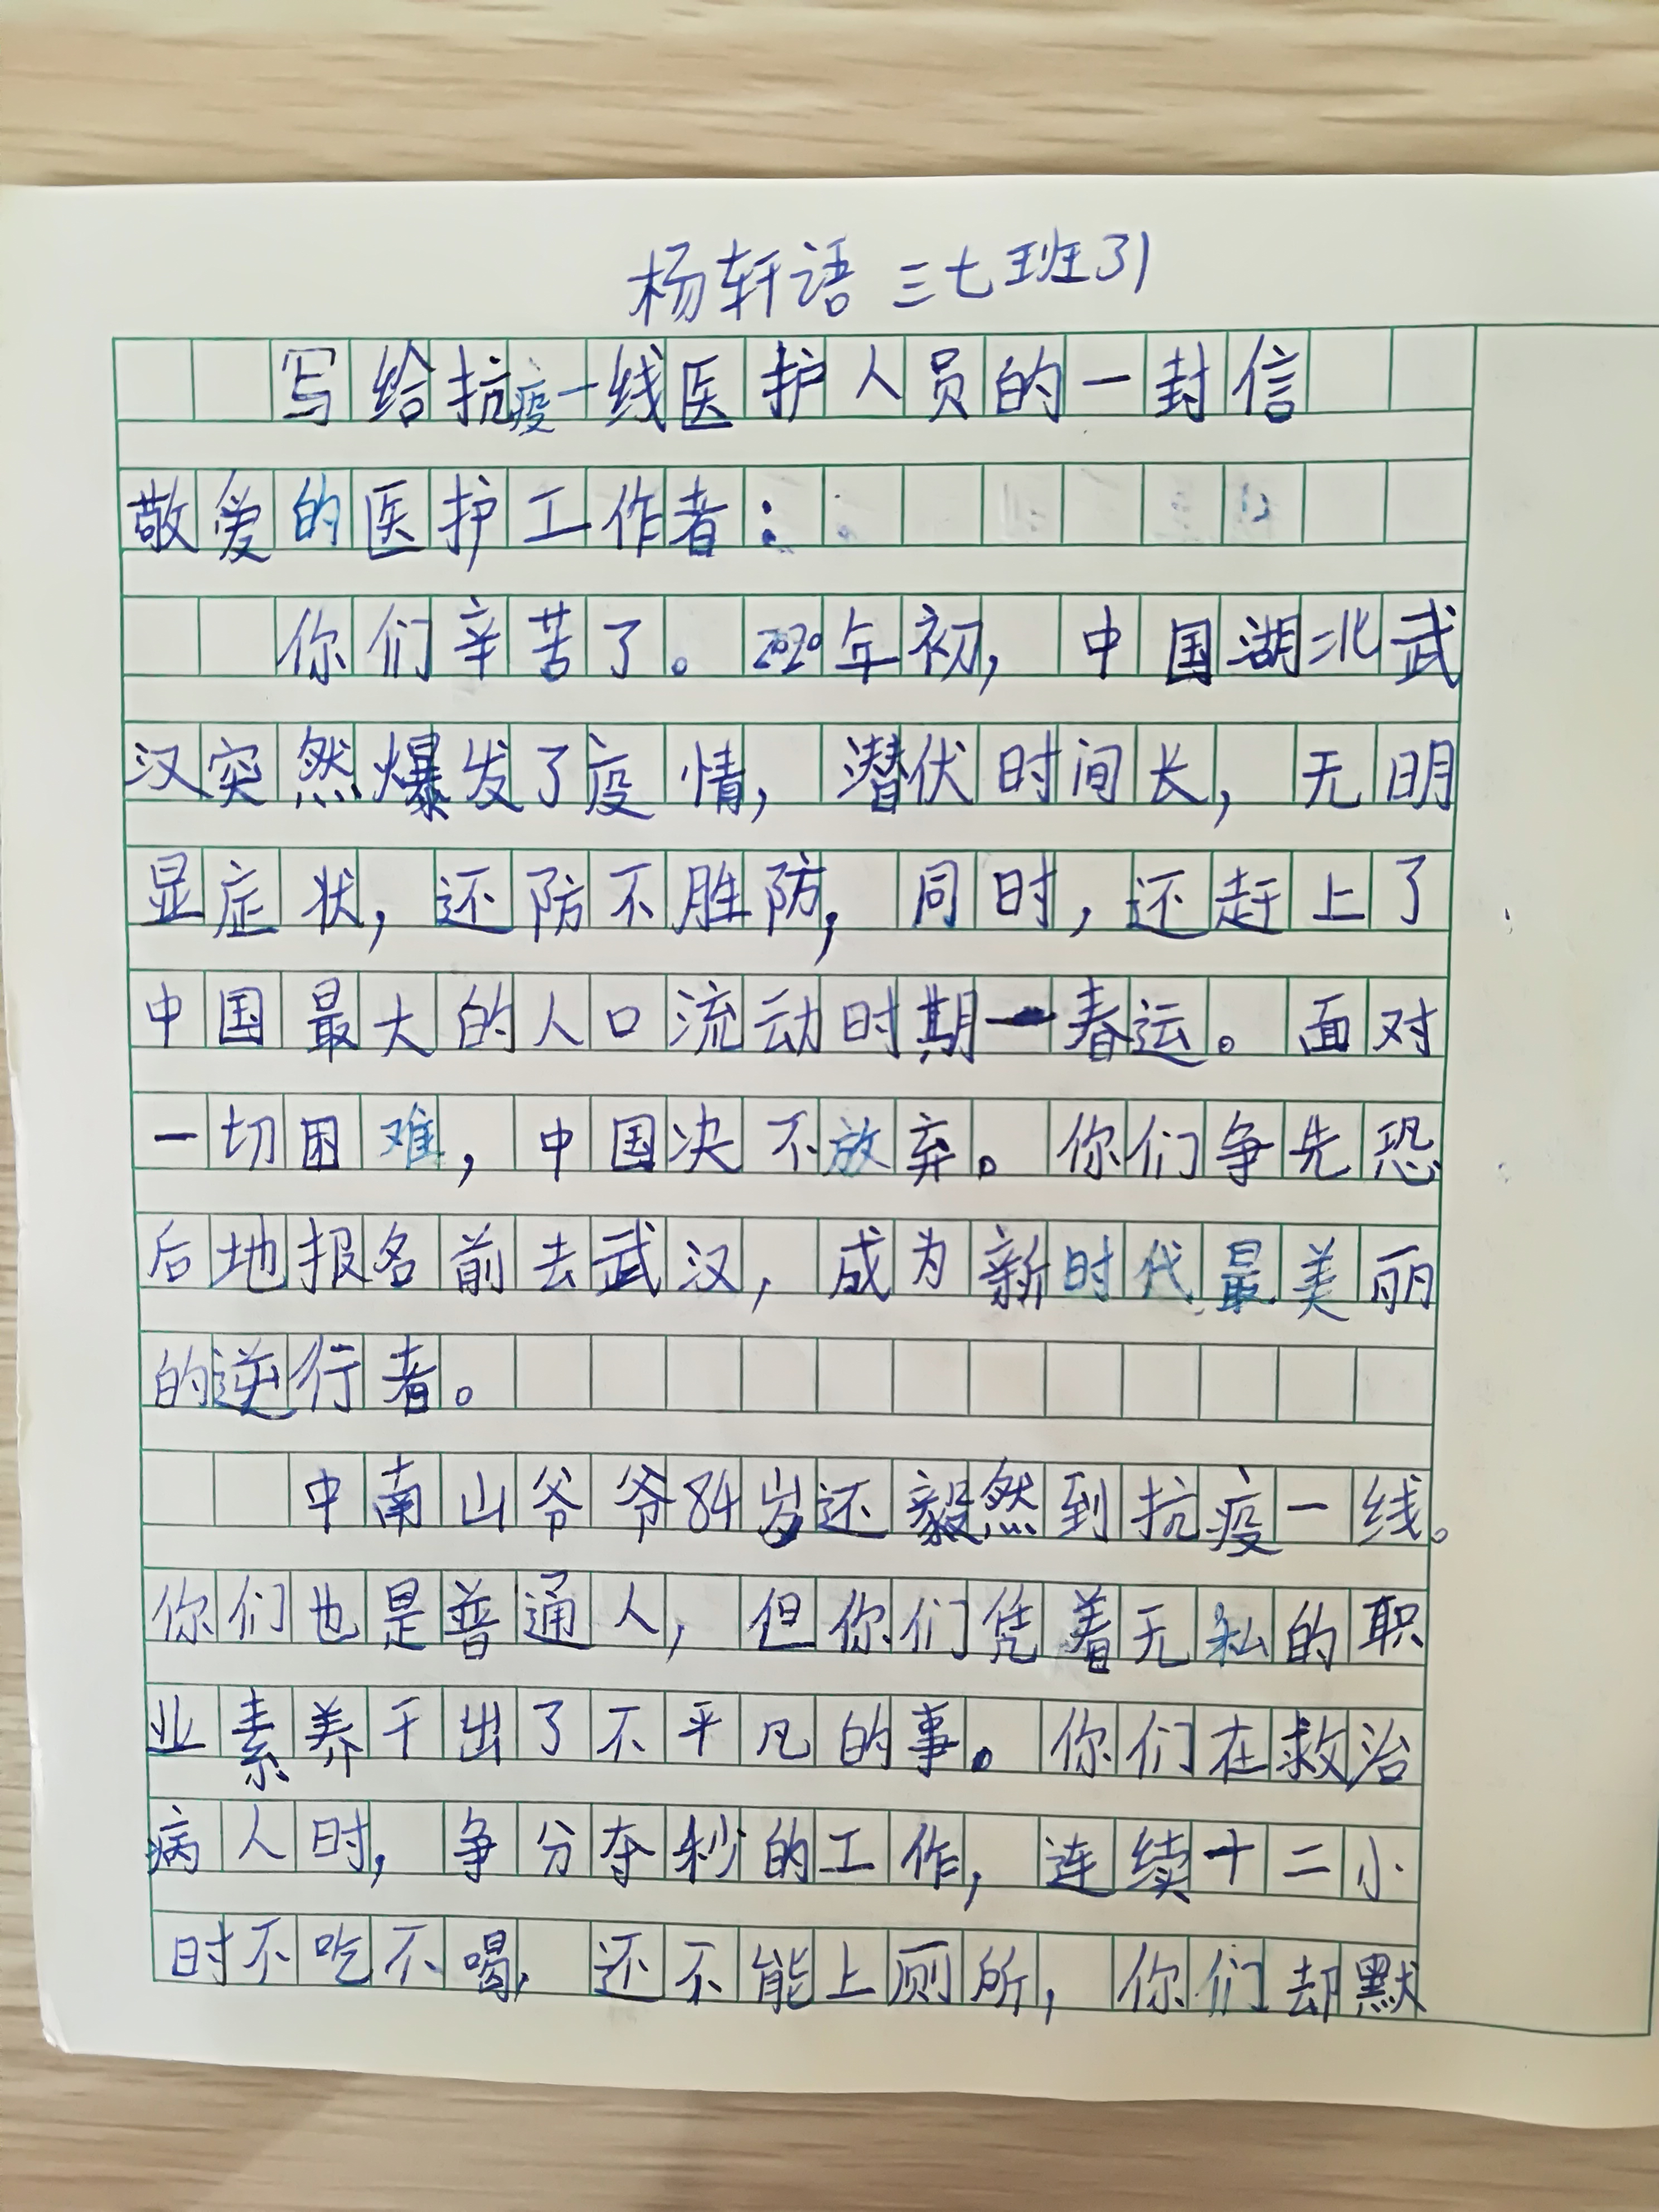 杨轩语 三七班31
写给抗疫一线医护人员的一封信
敬爱的医护工作者：
你们辛苦了。2020年初，中国湖北武
汉突然爆发了疫情，潜伏时间长，无明
显症状，还防不胜防，同时，还赶上了
中国最大的人口流动时期一春运。面对
一切困难，中国决不放弃。你们争先恐
后地报名前去武汉，成为新时代最美丽
的逆行者。
中南山爷爷84岁还毅然到抗疫一线。
你们也是普通人，但你们凭着无私的职
业素养干出了不平凡的事。你们在救治
病人时，争分夺秒的工作，连续十二小
时不吃不喝，还不能上厕所，你们却默